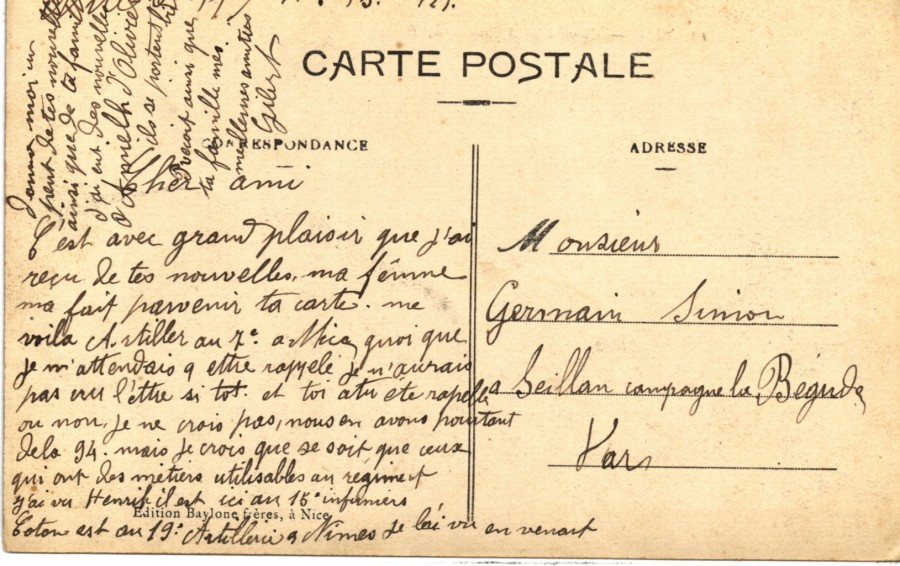 CARTE POSTALE
CORRESPONDANCE
ADRESSE
Cher ami
C'est avec grand plaisir que j'ai
reçu de tes nouvelles, ma femme
ma fait parvenir ta carte. me
voila Artiller au 7e a Nice, quoi que
je m'attendais a ettre rappelé je n'aurais
pas cru l'ettre si tot. et toi atu ete rapellé
ou non, je ne crois pas, nous en avons pourtant
dela 94. mais je crois que se soit que ceux
qui ont des métiers utilisables au régiment
j'ai vu Henri il est ici au 15e infirmiers
Edition Baylone frères, à Nice
Toton est au 19e Artillerie a Nimes je lai vu en venant
Donne moi un
peut de tes nouvelles
ainsi que de ta famille
d'ai eut des nouvelles
d'Olivier
ils se portent
ainsi que
ta famille mes
meilleures amitiés
Gilert
Monsieur
Germain Simon
a Seillan campagne la Bégude
Var